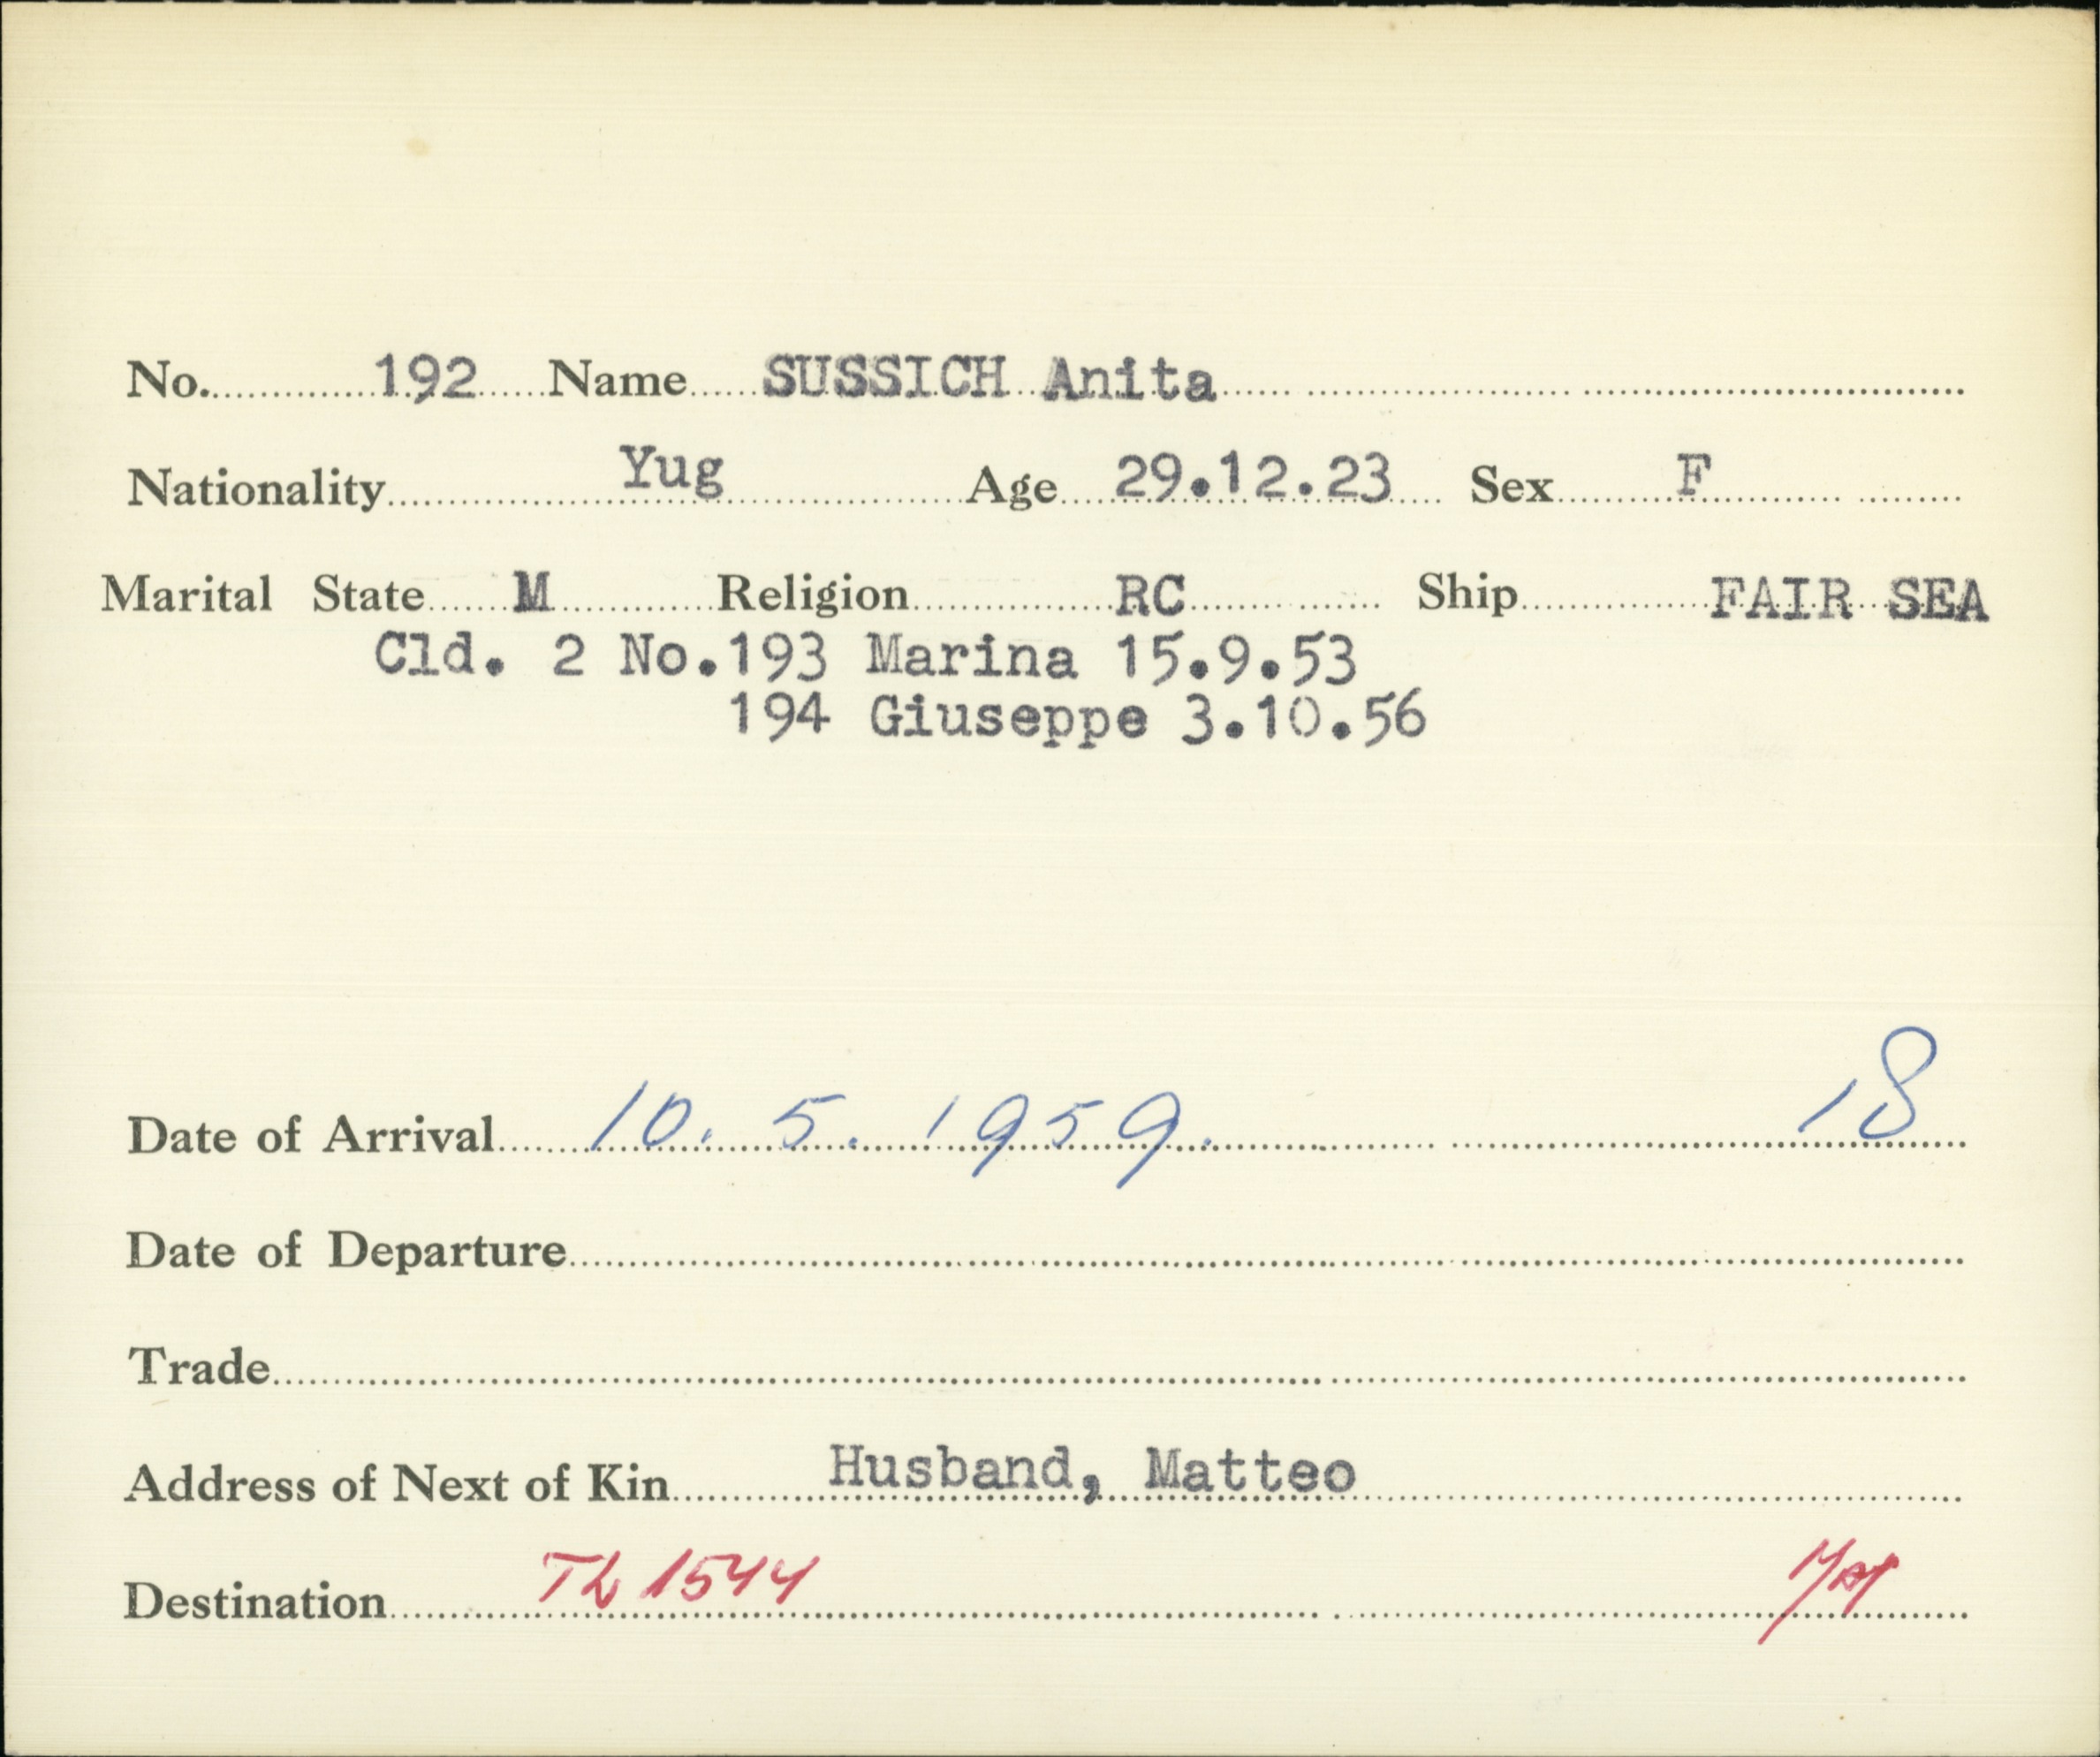 No. 192 Name SUSSICH Anita
Nationality Yug Age 29.12.23 Sex F
Marital State M Religion RC Ship FAIR SEA
Cld. 2 No.193 Marina 15.9.53
194 Giuseppe 3.10.56
18
Date of Arrival 10. 5. 1959.
Date of Departure
Trade
Address of Next of Kin Husband, Matteo
Destination 1544